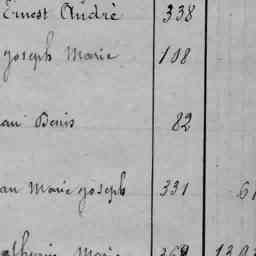 Ernest André 338
Joseph Marie 108
Denis 82
an Marie Joseph 331 61
Marie 369